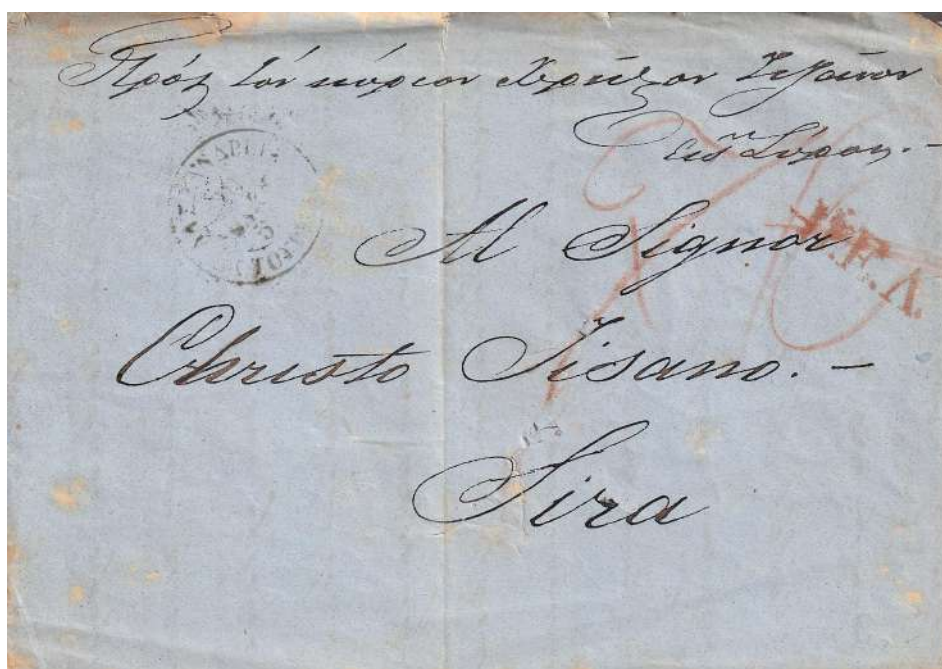 Πρός τόν κύριον Χρῆστον
Εἰς Σύραν.-
Al Signor
Christo Sisano.-
Sira